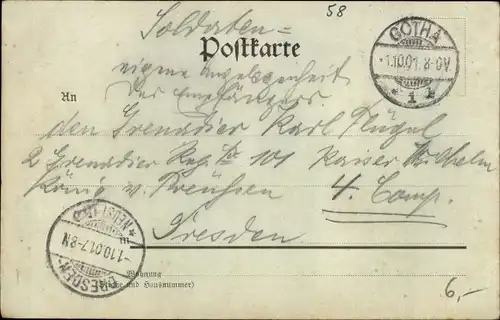 58
Soldaten=
Postkarte
eigene Angelegenheit
des Empfängers.
An
den Grenadier Karl Flügel
2 Grenadier Reg. No 101 Kaiser Wilhelm
König v. Preußen 4. Comp.
Dresden
Wohnung
(Straße und Hausnummer)
6,-
GOTHA
1.10.01. 8-9V
* 1
DRESDEN-
NEUSTADT
1.10.01. 7-8N